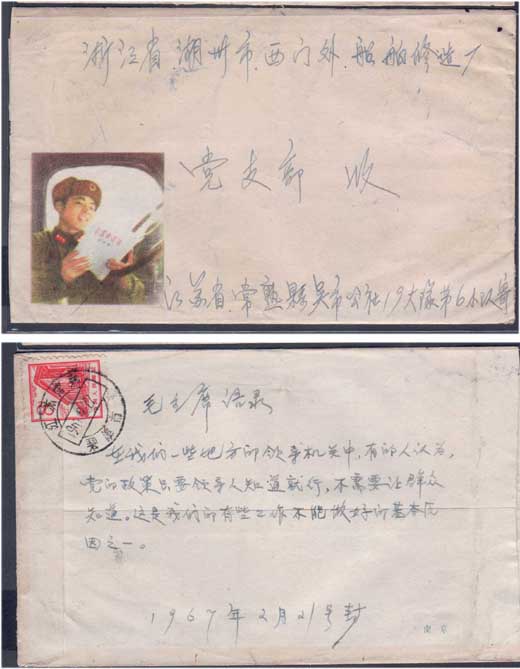 浙江省湖州市西门外船舶修造厂
党支部 收
江苏省常熟縣吴市公社19大隊第6小队寄
毛主席语录
在我们一些地方的领导机关中，有的人认为，
党的政策只要领导人知道就行，不需要让群众
知道。这是我们的有些工作不能做好的基本原
因之一。
1967年2月21号封
南京